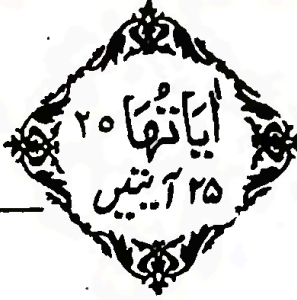 اٰیَاتُهَا ۲۵
۲۵ آیتیں